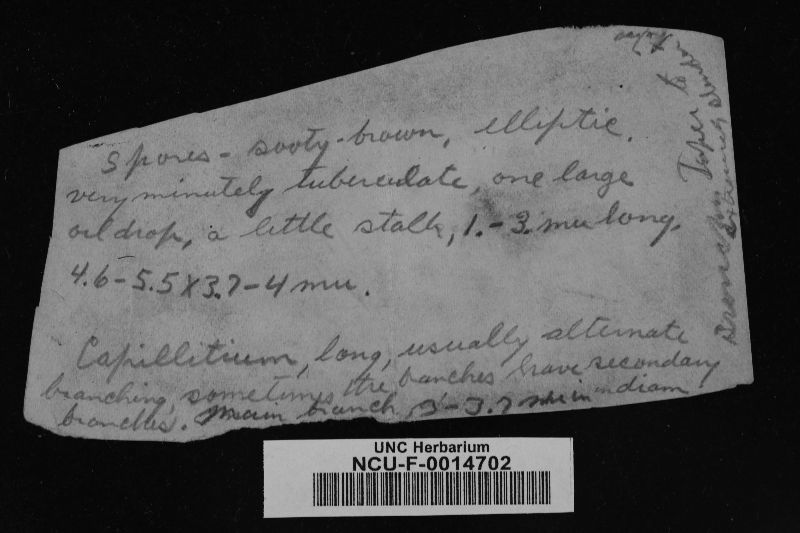 Spores - sooty-brown, elliptic,
very minutely tuberculate, one large
oil drop, a little stalk, 1.-3. mu long.
4.6-5.5 x 3.7-4 mu.
Capillitium, long, usually alternate
branching, sometimes the branches have secondary
branches. Main branch 3-3.7 mu in diam
Taper to
UNC Herbarium
NCU-F-0014702